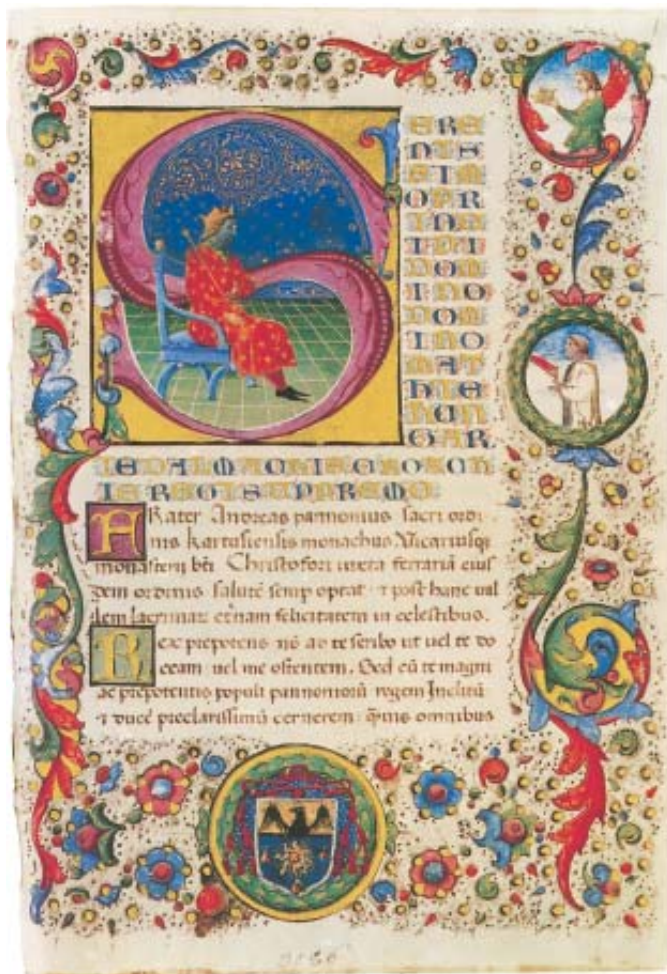 S
ERE
NIS
SIM
O PR
INC
IPI
DOM
INO
DOM
INO
MAT
HIE
HUN
GAR
IE DALMACHIE CROACH
IE REGI SUPREMO:
FRater Andreas pannonius sacri ordi
nis kartusiensis monachus Vicariusqȝ
monasterij bti Christofori iuxta ferrariā eius
dem ordinis salutē semp optat · ⁊ post hanc val
lem lacrimar et̄nam felicitatem in celestibus.
Rex prepotens nō ad te scribo ut uel te do
ceam uel me ostentem. Sed cū te magni
ac prepotentis populi pannoniorū regem Inclitū
⁊ ducē preclarissimū cernerem: q̄uis omnibus